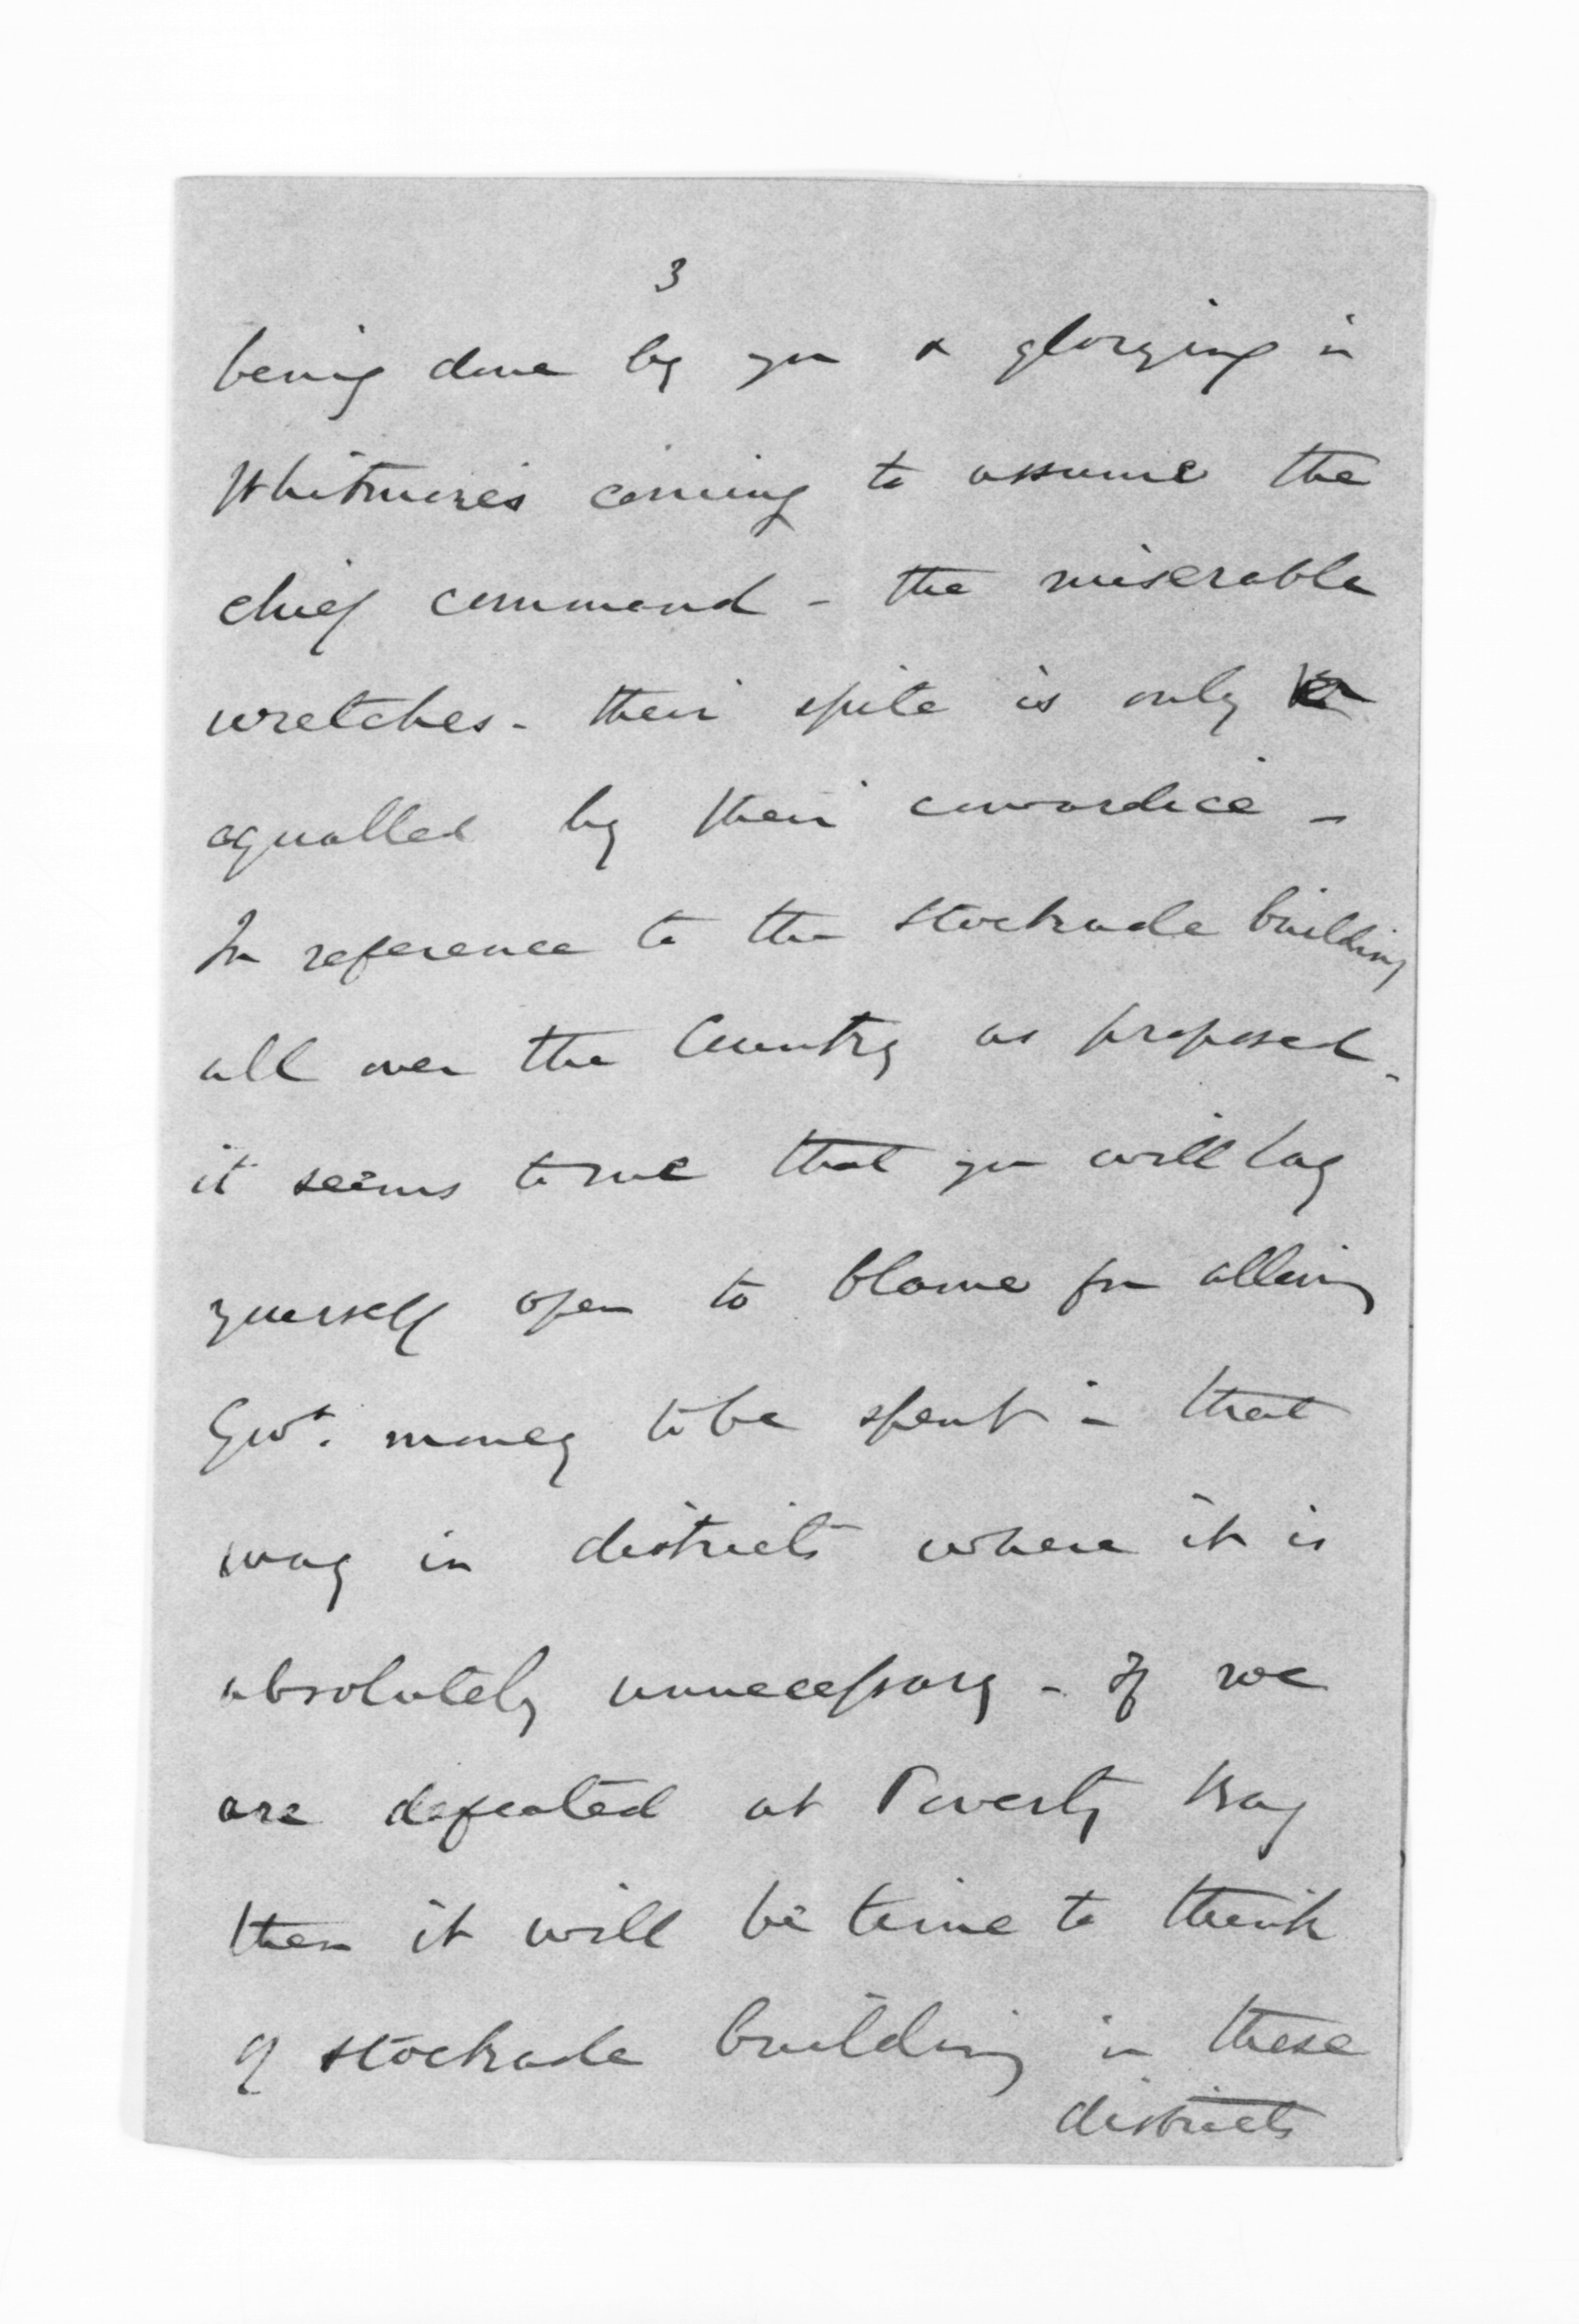 3
being done by you & glorying in
Whitmore's coming to assume the
chief command - the miserable
wretches - their spite is only
equalled by their cowardice -
In reference to the stockade building
all over the Country as proposed -
it seems to me that you will lay
yourself open to blame for allowing
Govt. money to be spent in that
way in districts where it is
absolutely unnecessary - If we
are defeated at Poverty Bay
then it will be time to think
of stockade building in these
districts